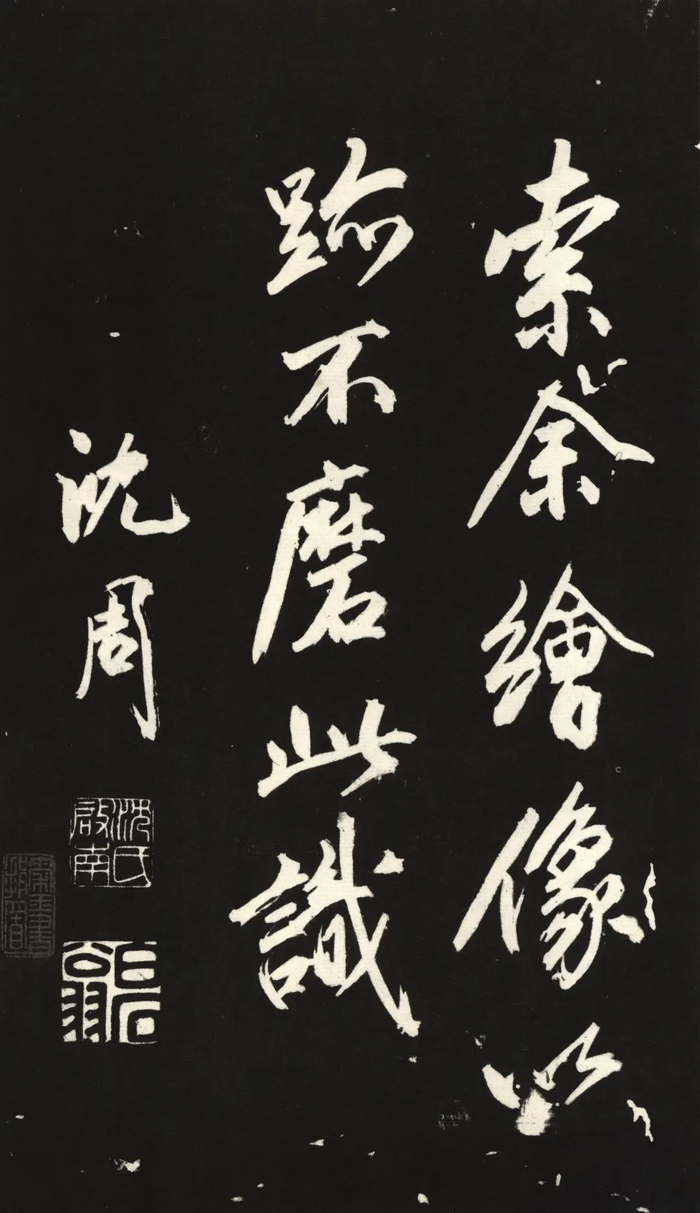 索余繪像以
跡不磨此識
沈周
沈氏啟南
石田